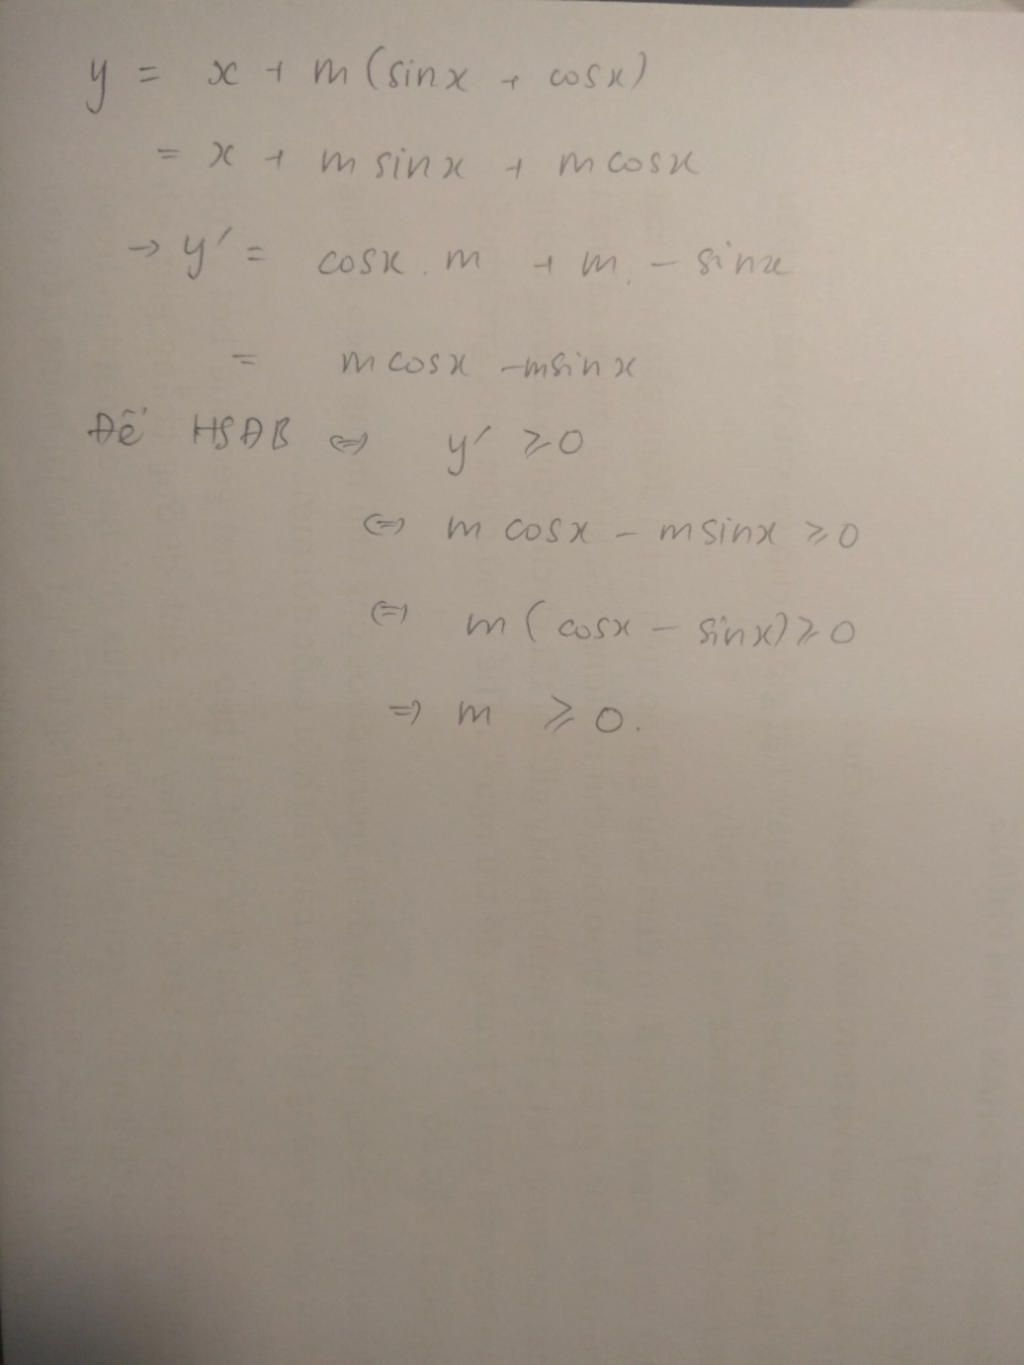 y = x + m (sinx + cosx)
= x + m sinx + m cosx
→ y' = cosx . m + m . - sinx
= m cosx - msinx
Để HSĐB ⇔ y' ≥ 0
⇔ m cosx - m sinx ≥ 0
⇔ m ( cosx - sinx) ≥ 0
⇒ m ≥ 0.